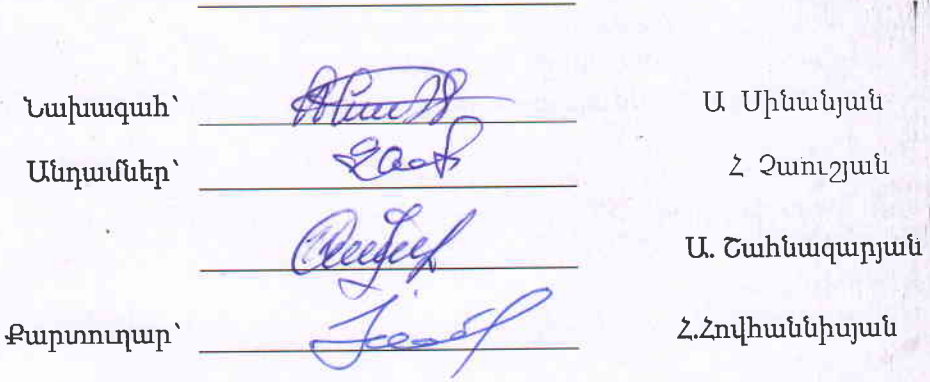 Նախագահ՝ Ա. Մինանյան
Անդամներ՝ Հ Չաուշյան
Ա. Շահնազարյան
Քարտուղար՝ Հ.Հովհաննիսյան